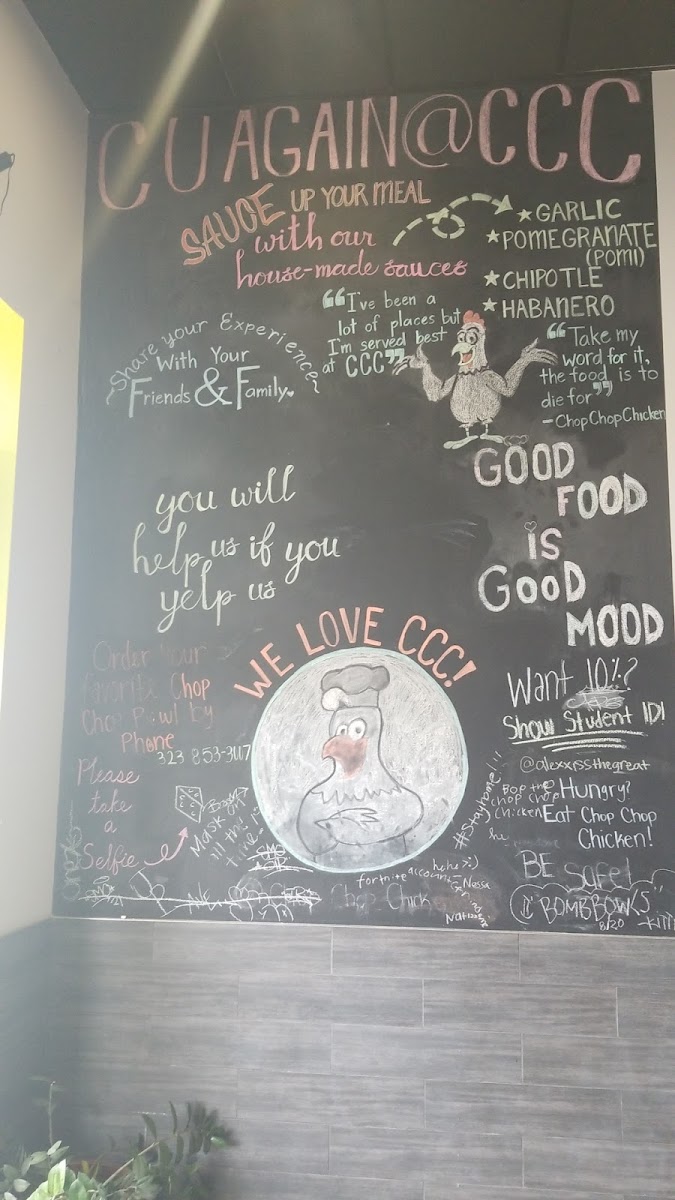 CU AGAIN@CCC
SAUCE UP YOUR MEAL
with our
house-made sauces
★ GARLIC
★ POMEGRANATE
(POMI)
★ CHIPOTLE
★ HABANERO
❝I've been a
lot of places but
I'm served best
at CCC❞
~Share your Experience~
With Your
Friends & Family
❝Take my
word for it,
the food is to
die for❞
-ChopChopChicken
GOOD
FOOD
iS
GOOD
MOOD
you will
help us if you
yelp us
WE LOVE CCC!
Order your
favorite Chop
Chop Bowl by
Phone
323 853-3117
Please
take
a
Selfie
Mask
all the
time
Want 10%?
Show Student ID!
@alexxissthegreat
Bop the
chop chop
chicken
Hungry?
Eat Chop Chop
Chicken!
#Stayhome!!!
hehe :)
fortnite account
Chop Chick
BE Safe!
"BOMBBOWLS"
8/20